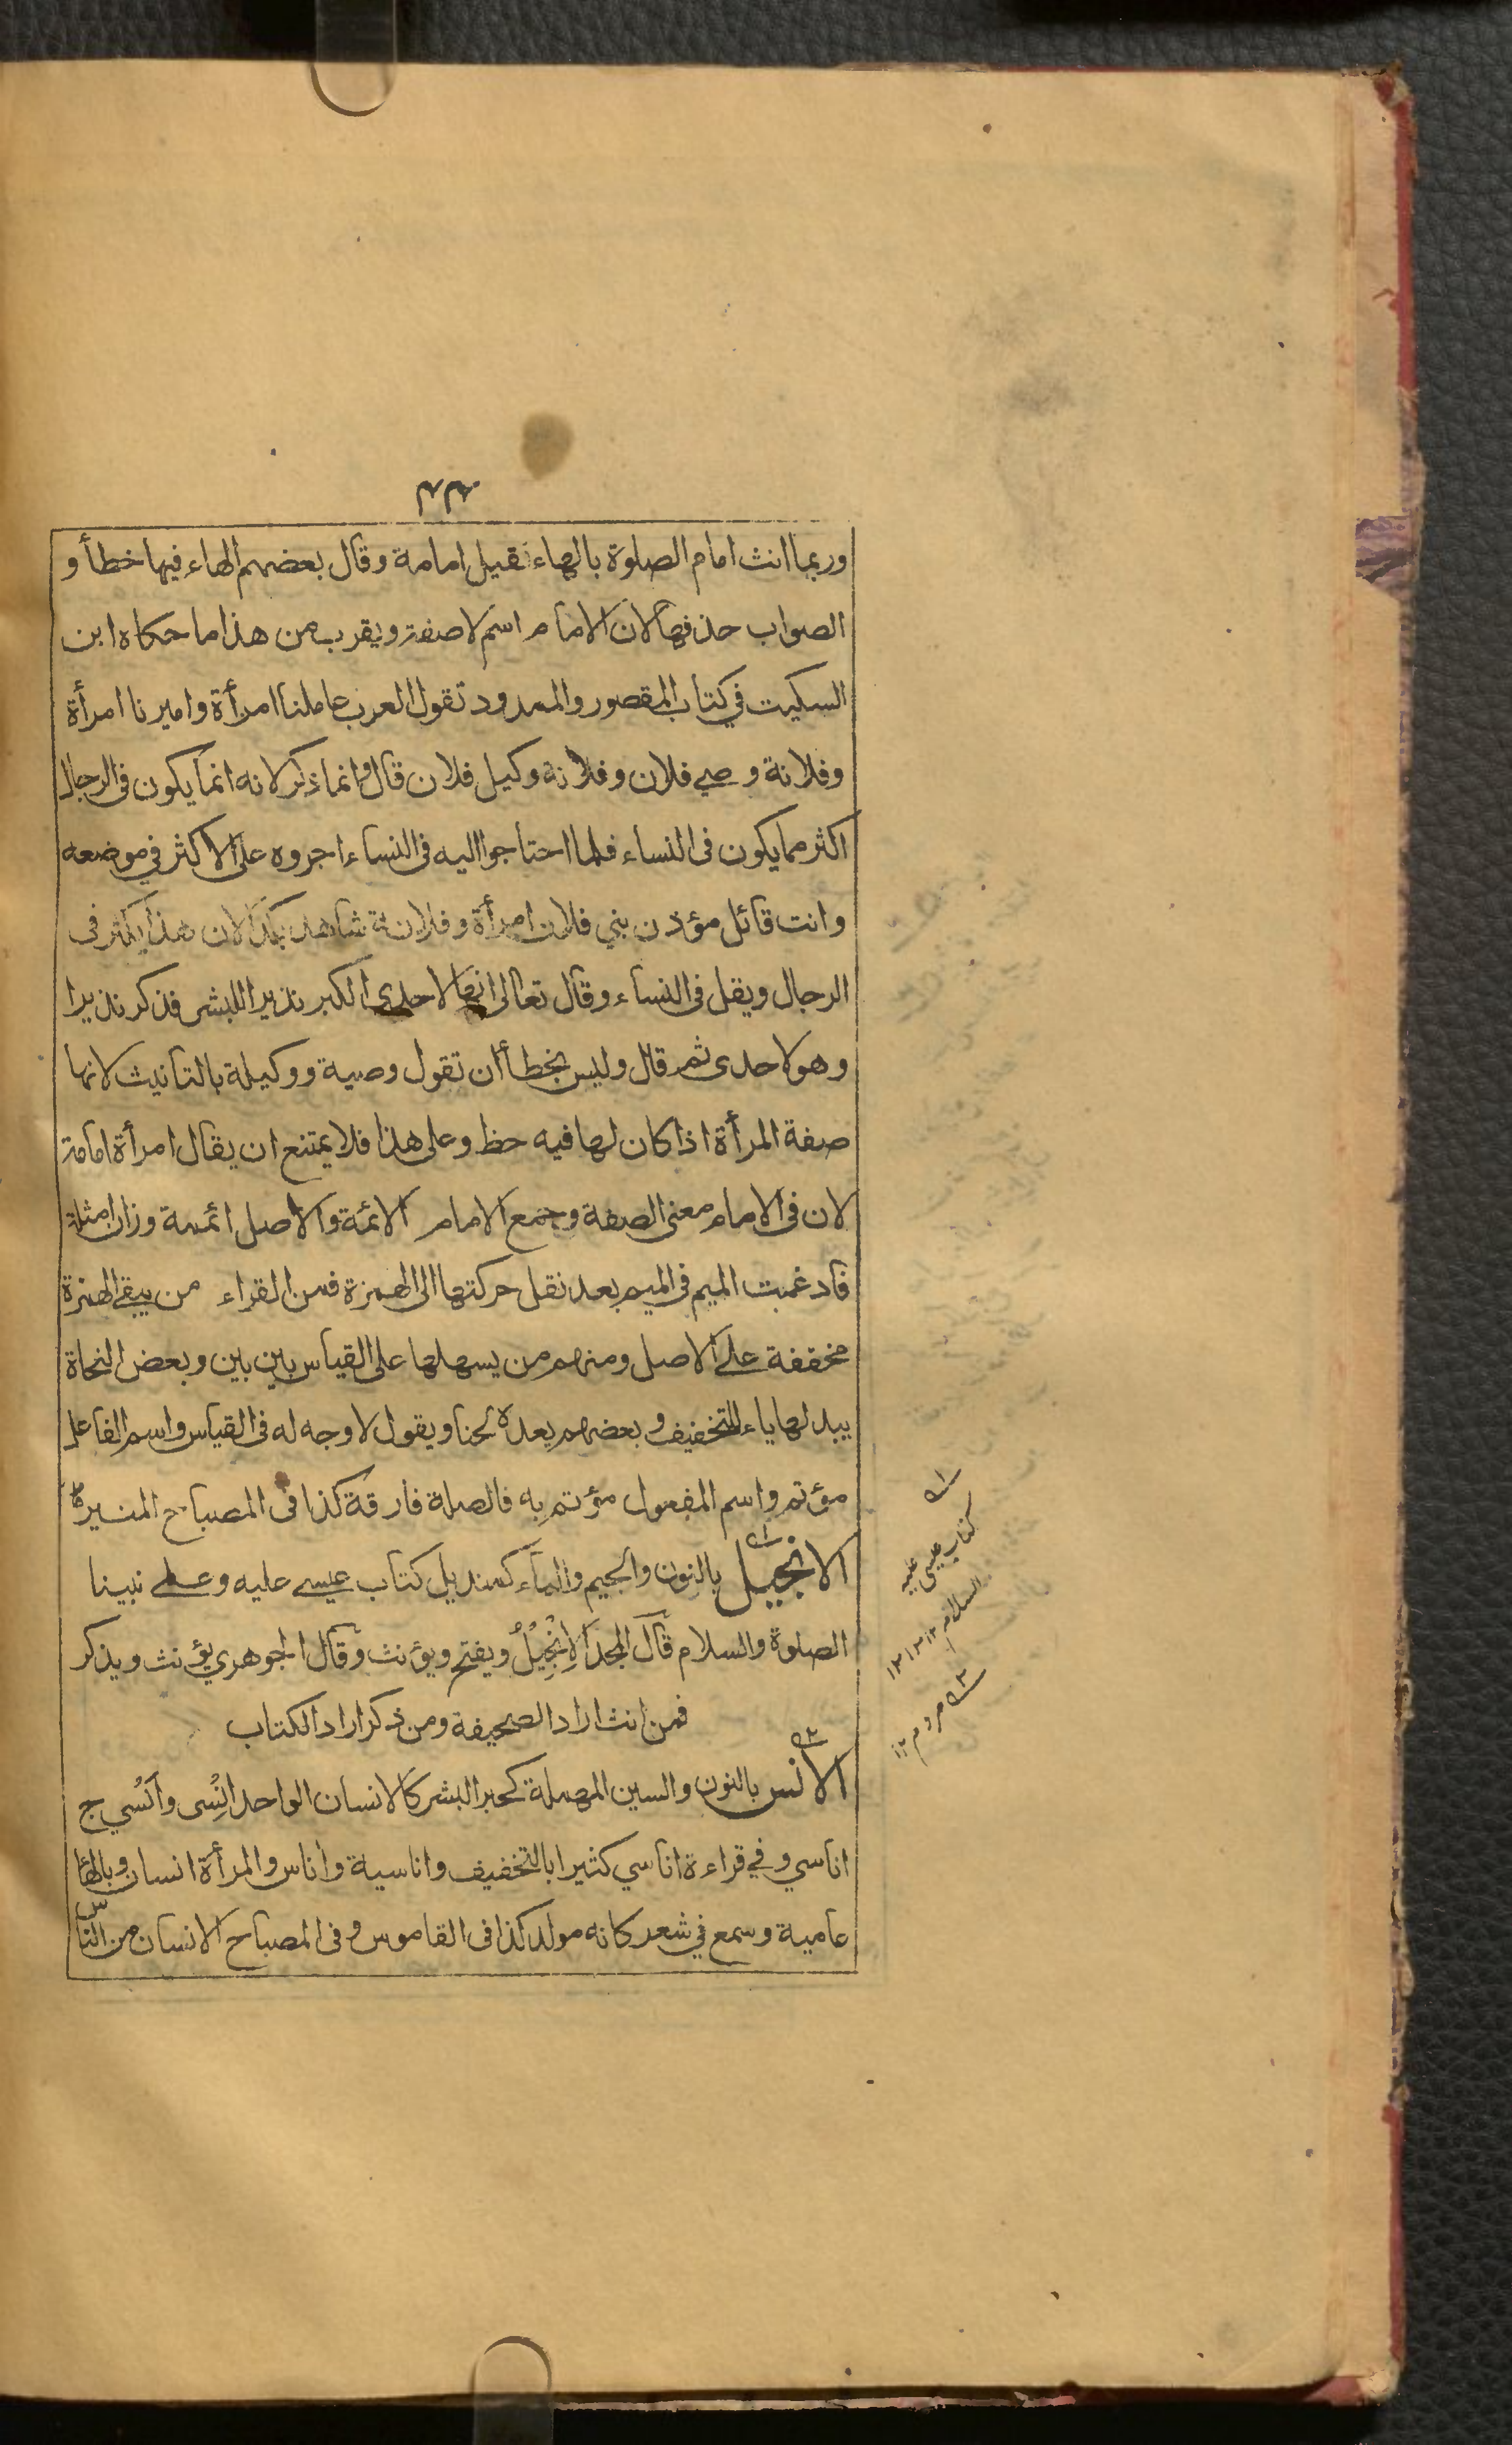 وربما انث امام الصلوة بالهاء فقيل امامة وقال بعضهم الهاء فيها خطأ و
الصواب حذفها لان الامام اسم لا صفة ويقرب من هذا ما حكاه ابن
السكيت في كتاب المقصور والممدود تقول العرب عاملنا امرأة واميرنا امرأة
وفلانة وصي فلان وفلانة وكيل فلان قال وانما ذكر لانه انما يكون فى الرجال
اكثر مما يكون فى النساء فلما احتاجوا اليه فى النساء اجروه على الاكثر في موضعه
وانت قائل مؤذن بني فلان امرأة وفلانة شاهد بكذا لان هذا يكثر فى
الرجال ويقل فى النساء وقال تعالى انها لاحدى الكبر نذيرا للبشر فذكر نذيرا
وهو لاحدى ثم قال وليس بخطأ ان تقول وصية ووكيلة بالتانيث لانها
صفة المرأة اذا كان لها فيه حظ وعلى هذا فلا يمتنع ان يقال امرأة امامة
لان فى الامام معنى الصفة وجمع الامام الائمة والاصل ائممة وزان امثلة
فادغمت الميم فى الميم بعد نقل حركتها الى الهمزة فمن القراء من يبقى الهمزة
مخففة على الاصل ومنهم من يسهلها على القياس بين بين وبعض النحاة
يبدلها ياء للتخفيف وبعضهم يعده لحنا ويقول لا وجه له فى القياس واسم الفاعل
مؤتم واسم المفعول مؤتم به فالصلة فارقة كذا فى المصباح المنير
الانجيل بالنون والجيم والياء كمنديل كتاب عيسے عليه وعلے نبينا
الصلوة والسلام قال المجد الْاِنْجِيْلُ ويفتح ويؤنث وقال الجوهري يؤنث ويذكر
فمن انث اراد الصحيفة ومن ذكر اراد الكتاب
الانس بالنون والسين المهملة كحبر البشر كالانسان الواحد اِنْسى وأنسي ج
اناسي وفي قراءة اناسي كثيرا بالتخفيف واناسية واناس والمرأة انسان وبالهاء
عامية وسمع في شعر كانه مولد كذا فى القاموس وفى المصباح الانسان من الناس
۱
كتاب عيسى عليه
السلام ۱۲
۲ مردم ۱۲